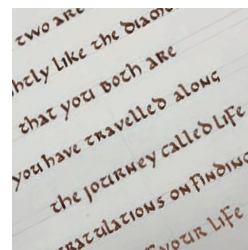 two are
like the
that you both are
you have travelled along
the journey called life
on finding
your life